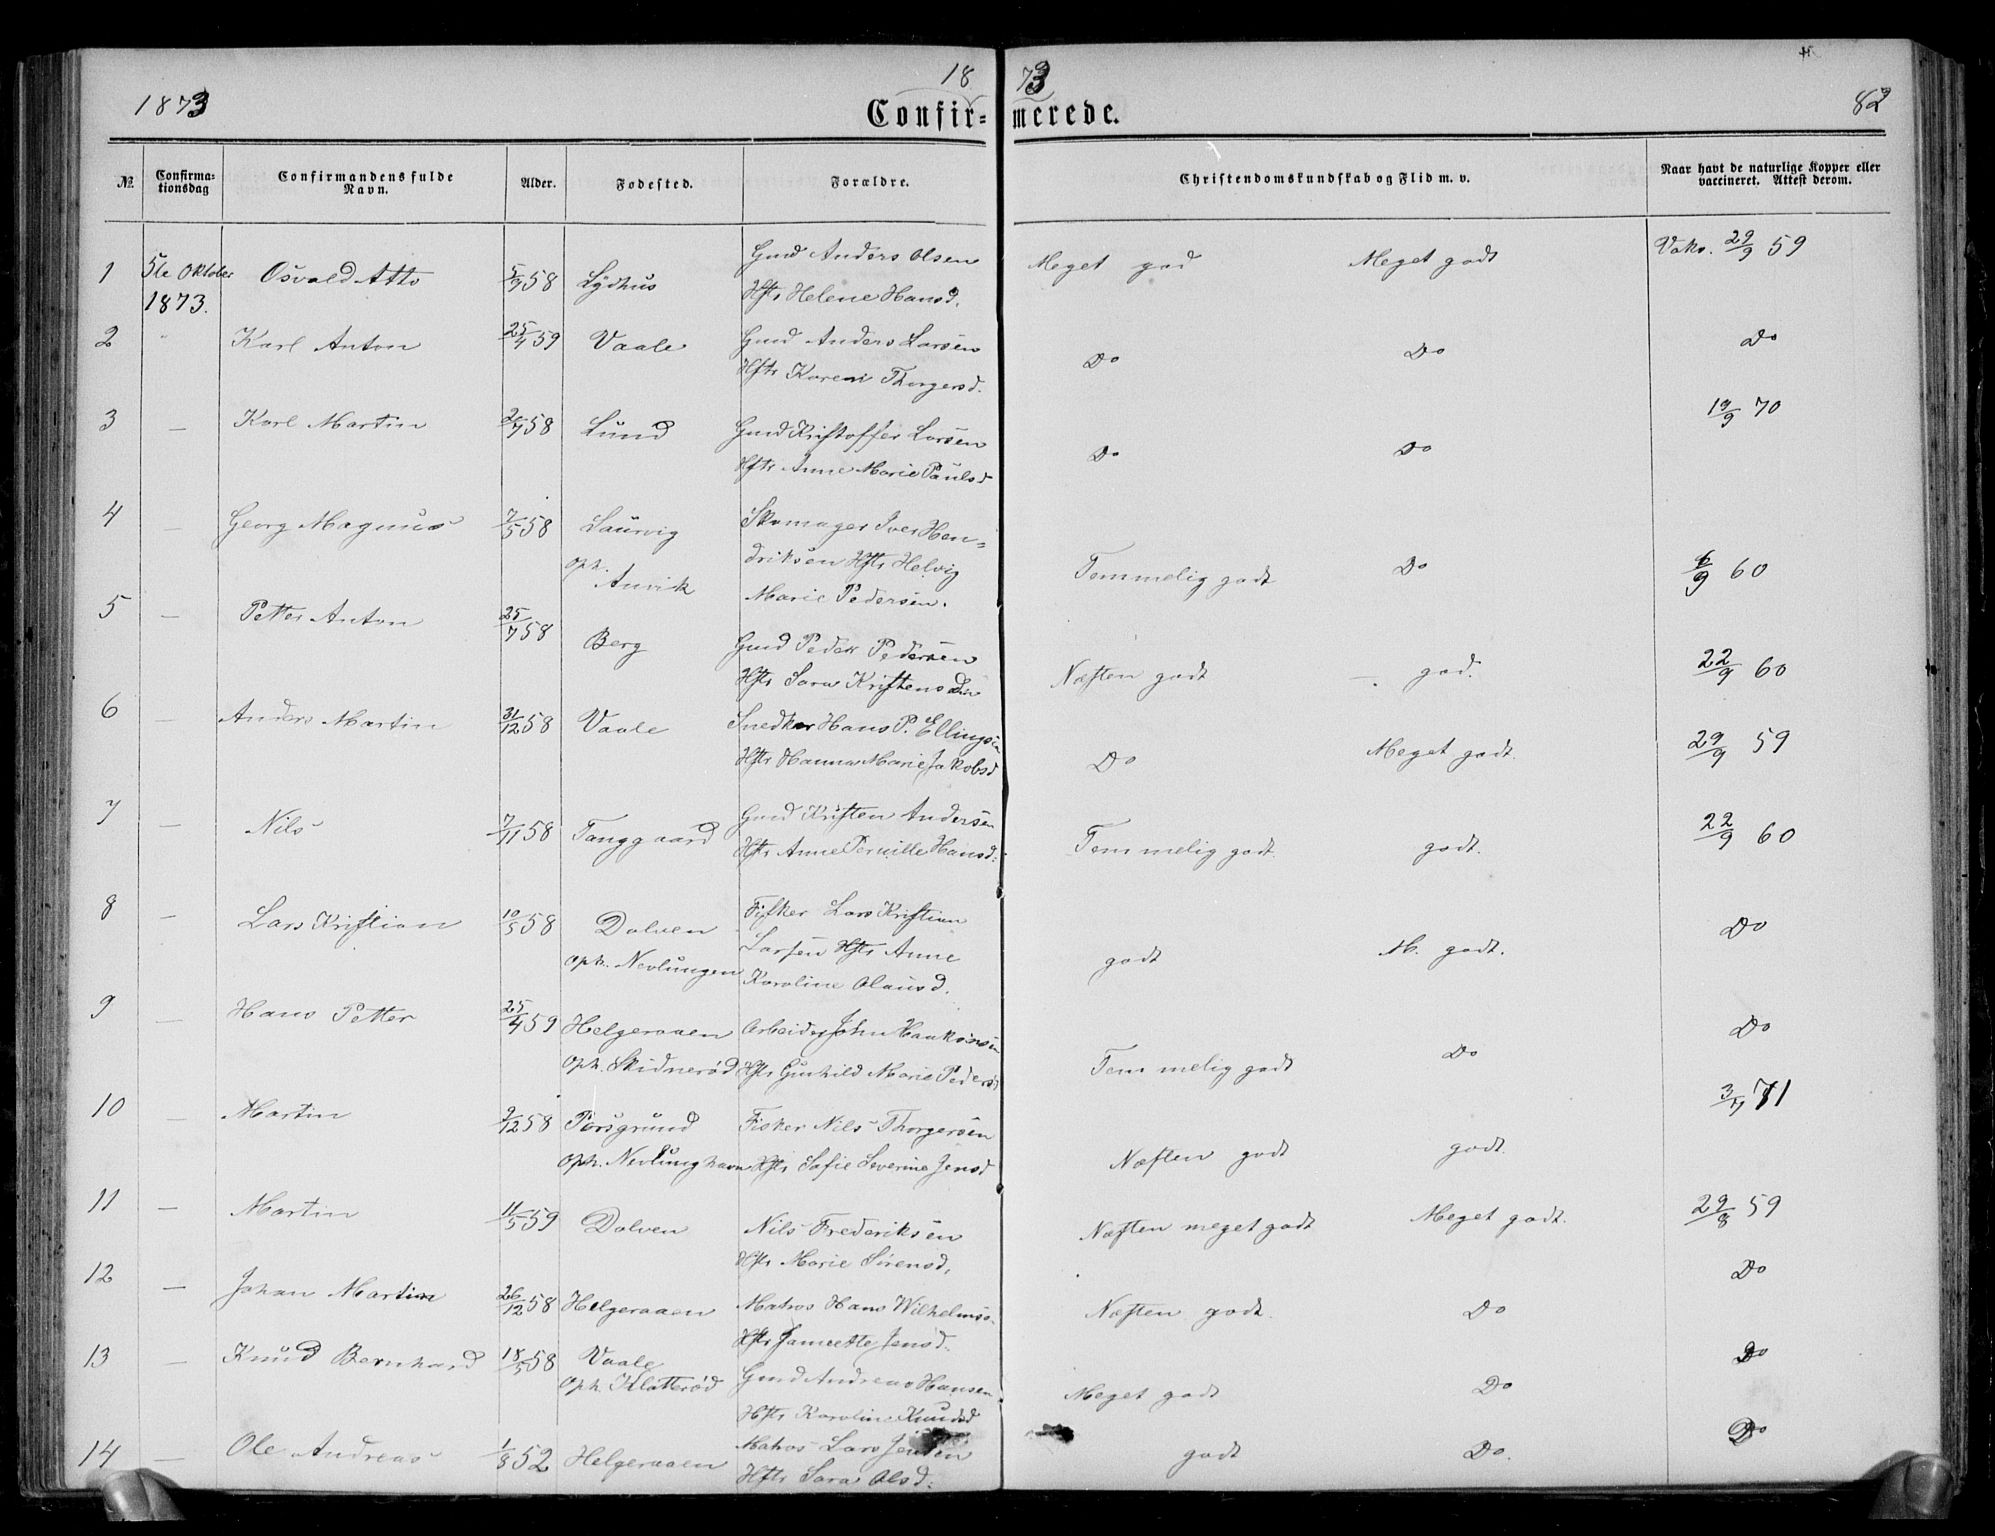 18 73
1873 Confir- merede. 82
№ Confirma- Confirmandens fulde Alder. Fødested. Forældre. Christendomskundskab og Flid m. v. Naar havt de naturlige Kopper eller
tionsdag Navn. vaccineret. Attest derom.
1 5te Oktober Osvald Atto 5/9 58 Lydhus Gmd Anders Olsen Meget god Meget godt Vaks. 29/9 59
1873. Hstr Helene Hansd.
2 " Karl Anton 25/4 59 Vaale Gmd Anders Larsen Do Do Do
Hstr Karen Thorgersd.
3 — Karl Martin 2/7 58 Lund Gmd Kristoffer Larsen Do Do 19/9 70
Hstr Anne Marie Paulsd
4 — Georg Magnus 7/5 58 Laurvig Skomager Iver Hen=
oph. Anvik driksen Hstr Helvig Temmelig godt Do 6/9 60
Marie Pedersen.
5 — Petter Anton 25/7 58 Berg Gmd Peder Pedersen Næsten godt — god. 22/9 60
Hstr Sara Kristensd
6 — Anders Martin 31/12 58 Vaale Snedker Hans P. Ellingsen Do Meget godt. 29/9 59
Hstr Hanna Marie Jakobsd
7 — Nils 7/11 58 Tanggaard Gmd Kristen Andersen Temmelig godt godt. 22/9 60
Hstr Anne Pernille Hansd.
8 — Lars Kristian 10/5 58 Dolven Fisker Lars Kristian
oph. Nevlungen Larsen Hstr Anne godt M. godt. Do
Karoline Olausd.
9 — Hans Petter 25/4 59 Helgeraaen Arbeider John Haaksonsen Temmelig godt Do Do
oph. Skidnerød Hstr Gunhild Marie Pedersd
10 — Martin 9/12 58 Porsgrund Fisker Nils Thorgersen Næsten godt godt. 3/7 71
oph. Nevlunghavn Hstr Sofie Severine Jensd
11 — Martin 11/5 59 Dolven Nils Frederiksen Næsten meget godt Meget godt. 29/8 59
Hstr Marie Sørensd,
12 — Johan Martin 26/12 58 Helgeraaen Matros Hans Wilhelmss. Næsten godt. Do Do
Hstr Jensd.
13 — Knud Bernhard 18/5 58 Vaale Gmd Andreas Hansen Meget godt Do Do
oph. Klatterød Hstr Karoline Knudsd
14 — Ole Andreas 1/8 52 Helgeraaen Matros Lars Jensen godt Do. Do
Hstr Sara Olsd.